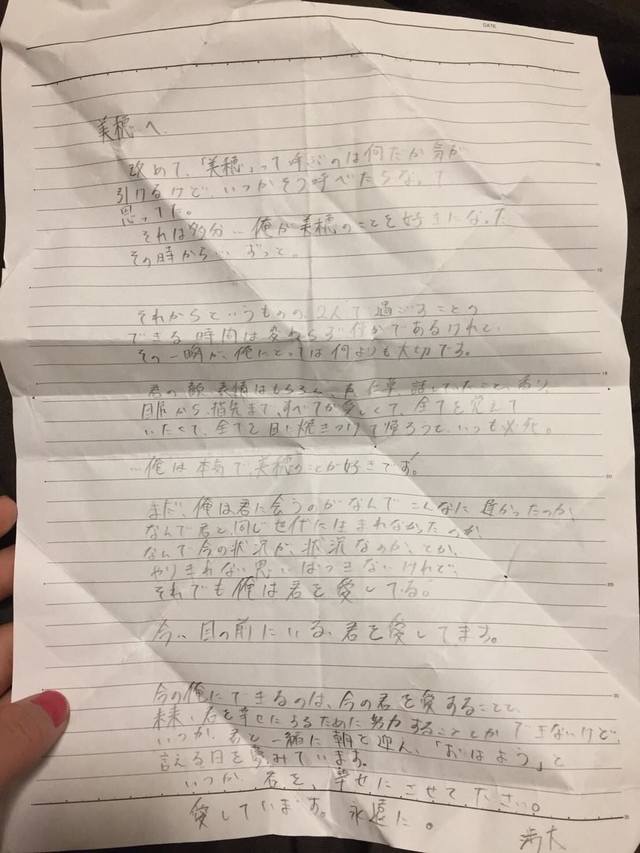 DATE
美穂へ
改めて、「美穂」って呼ぶのは何だか気が
引けるけど、いつかそう呼べたらなって
思ってた。
それは多分…俺が美穂のことを好きになった
その時から…ずっと。
それからというものの、2人で過ごすことの
できる時間は変わらず僅かであるけれど、
その一瞬が、俺にとっては何よりも大切です。
君の顔、表情はもちろん、声に、話していたこと、香り、
目尻から、指先まで、すべてが愛しくて、全てを覚えて
いたくて、全てを目に焼きつけて帰ろうと、いつも必死。
…俺は本気で美穂のことが好きです。
まだ、俺は君に会うのがなんでこんなに遅かったのか、
なんで君と同じ世代に生まれなかったのか、
なんで今の状況が、状況なのか、とか、
やりきれない思いはつきないけれど、
それでも俺は君を愛してる。
今、目の前にいる、君を愛してます。
今の俺にできるのは、今の君を愛することと、
未来、君を幸せにするために努力することしかできないけど、
いつか、君と一緒に朝を迎え、「おはよう」と
言える日を夢みています。
いつか、君を、幸せにさせてください。
愛しています。永遠に。